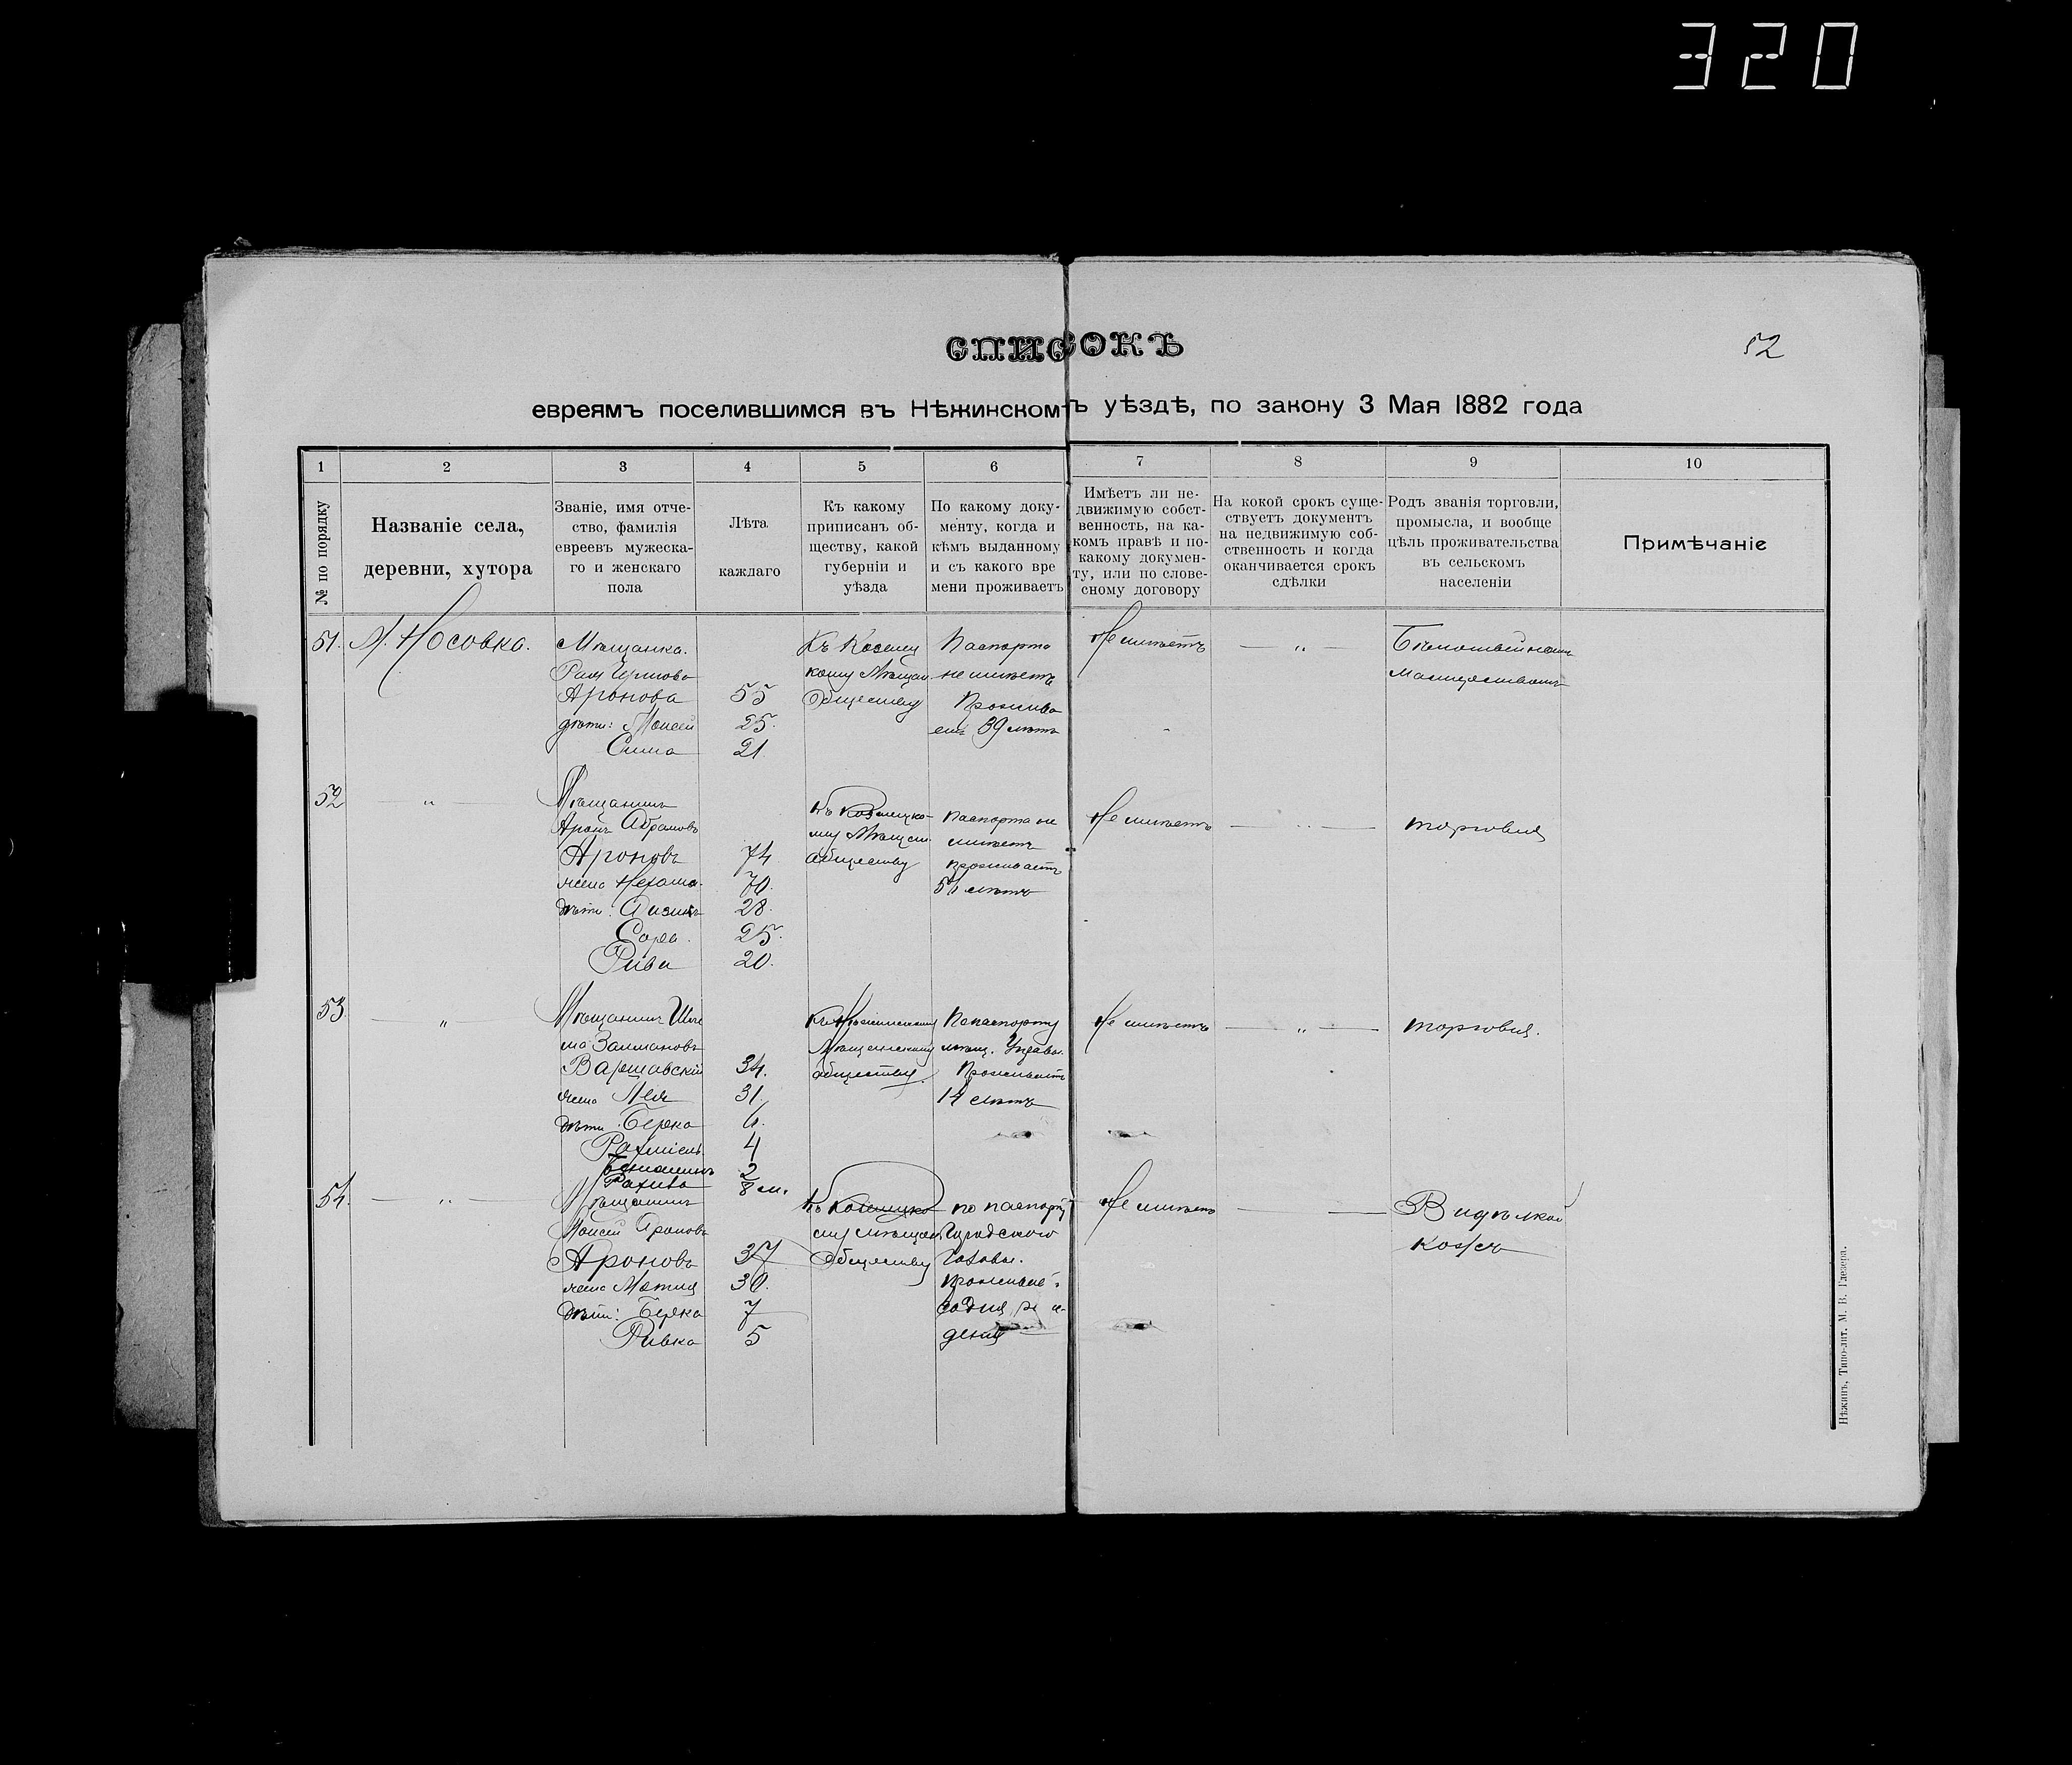 320
52
СПИСОКЪ
евреямъ поселившимся въ Нѣжинскомъ уѣздѣ, по закону 3 Мая 1882 года
1 2 3 4 5 6 7 8 9 10
№ по порядку
Названіе села,
деревни, хутора
Званіе, имя отче-
ство, фамилія
евреевъ мужеска-
го и женскаго
пола
Лѣта
каждаго
Къ какому
приписанъ об-
ществу, какой
губерніи и
уѣзда
По какому доку-
менту, когда и
кѣмъ выданному
и съ какого вре
мени проживаетъ
Имѣетъ ли не-
движимую собст-
венность, на ка-
комъ правѣ и по-
какому докумен-
ту, или по слове-
сному договору
На кокой срокъ суще-
ствуетъ документъ
на недвижимую соб-
ственность и когда
оканчивается срокъ
сдѣлки
Родъ званія торговли,
промысла, и вообще
цѣль проживательства
въ сельскомъ
населеніи
Примѣчаніе
51.
М. Носовка.
Мѣщанка.
Аронова 55
дѣти: Моисей 25.
Сима 21
Къ Козелец
кому Мѣщан.
Обществу
Паспорта
не имѣетъ
Прожива
етъ 39 лѣтъ
Не имѣетъ
— „ —
Бѣлошвейнымъ
мастерствомъ
52
— „ —
Мѣщанинъ
Аронъ Абрамовъ
Ароновъ 74
жена Нехама. 70.
дѣти: Айзикъ 28.
Сора. 25.
Рива 20.
Къ Козелецко-
му Мѣщан.
обществу
Паспорта не
имѣетъ
проживаетъ
51 лѣтъ
Не имѣетъ
— „ —
торговля
53
— „ —
Мѣщанинъ Шле
ма Залмановъ
Варшавскій 34.
жена Лея 31.
дѣти: Берка 6.
Рахміель 4
Беніоминъ 2
Рахиль 8 м.
Къ Нѣжинскому
Мѣщанскому
обществу.
По паспорту
мѣщ. Управы.
Проживаетъ
14 лѣтъ
Не имѣетъ
— „ —
торговля.
54.
— „ —
Мѣщанинъ
Моисей Ароновъ
Ароновъ 37
жена Матля 30.
дѣти: Берка 7
Ривка 5
Къ Козелецко
му мѣщан.
Обществу
по паспорту
Городского
Головы.
Проживае
со дня рож
денія
Не имѣетъ
— —
Видѣлкой
кожъ
Нѣжинъ, Типо-лит. М. В. Глезера.